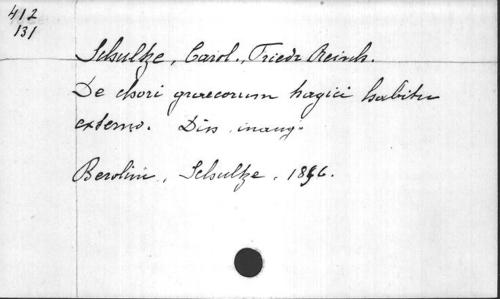 412
131
Schultze, Carol. Friedr. Reinh.
De chori graecorum tragici habitu
externo. Diss. inaug.
Berolini, Schultze. 1856.